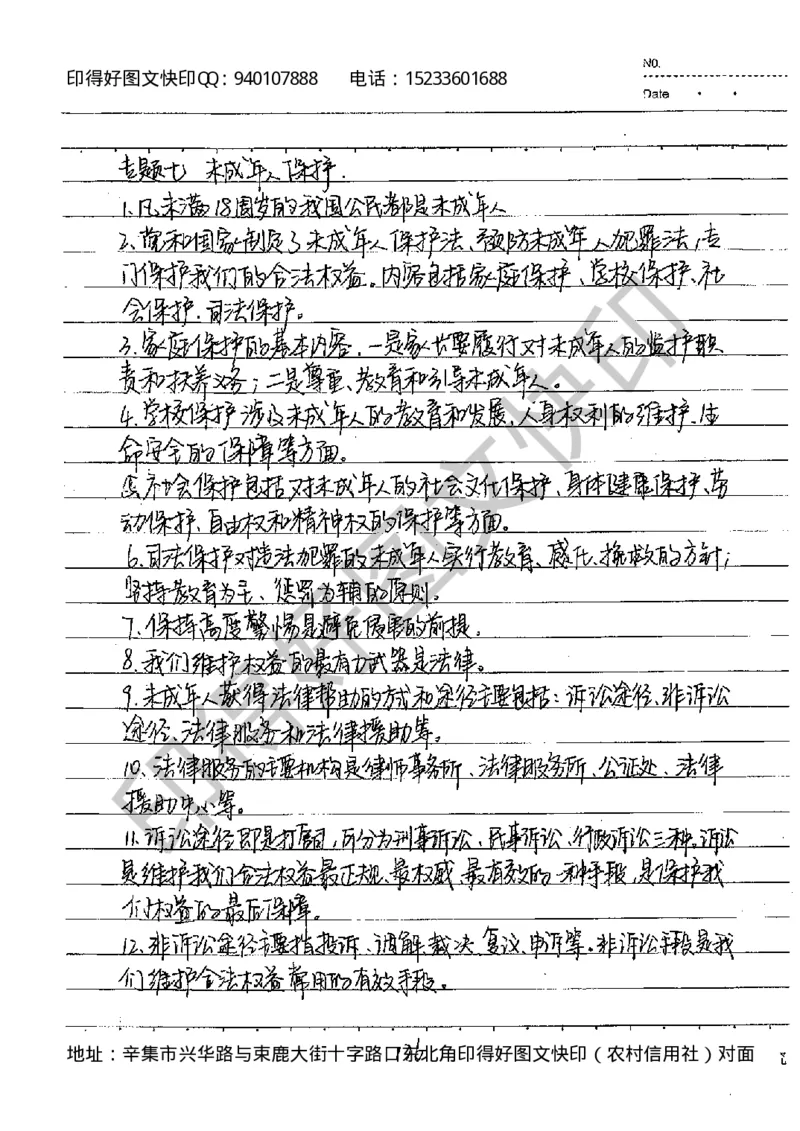 印得好图文快印QQ：940107888 电话：15233601688
No.
Date
专题七 未成年人保护.
1、凡未满18周岁的我国公民都是未成年人
2、党和国家制定了未成年人保护法、预防未成年人犯罪法,专
门保护我们的合法权益。内容包括家庭保护、学校保护、社
会保护、司法保护。
3、家庭保护的基本内容,一是家长要履行对未成年人的监护职
责和抚养义务;二是尊重、教育和引导未成年人。
4、学校保护涉及未成年人的教育和发展,人身权利的维护、生
命安全的保障等方面。
5、社会保护包括对未成年人的社会文化保护、身体健康保护、劳
动保护、自由权和精神权的保护等方面。
6、司法保护对违法犯罪的未成年人实行教育、感化、挽救的方针;
坚持教育为主、惩罚为辅的原则。
7、保持高度警惕是避免侵害的前提。
8、我们维护权益的最有力武器是法律。
9、未成年人获得法律帮助的方式和途径主要包括：诉讼途径、非诉讼
途径、法律服务和法律援助等。
10、法律服务的主要机构是律师事务所、法律服务所、公证处、法律
援助中心等。
11、诉讼途径即是打官司,可分为刑事诉讼、民事诉讼、行政诉讼三种。诉讼
是维护我们合法权益最正规、最权威、最有效的一种手段,是保护我
们权益的最后保障。
12、非诉讼途径主要指投诉、调解、裁决、复议、申诉等。非诉讼手段是我
们维护合法权益常用的有效手段。
地址：辛集市兴华路与束鹿大街十字路口东北角印得好图文快印（农村信用社）对面
印得好图文快印